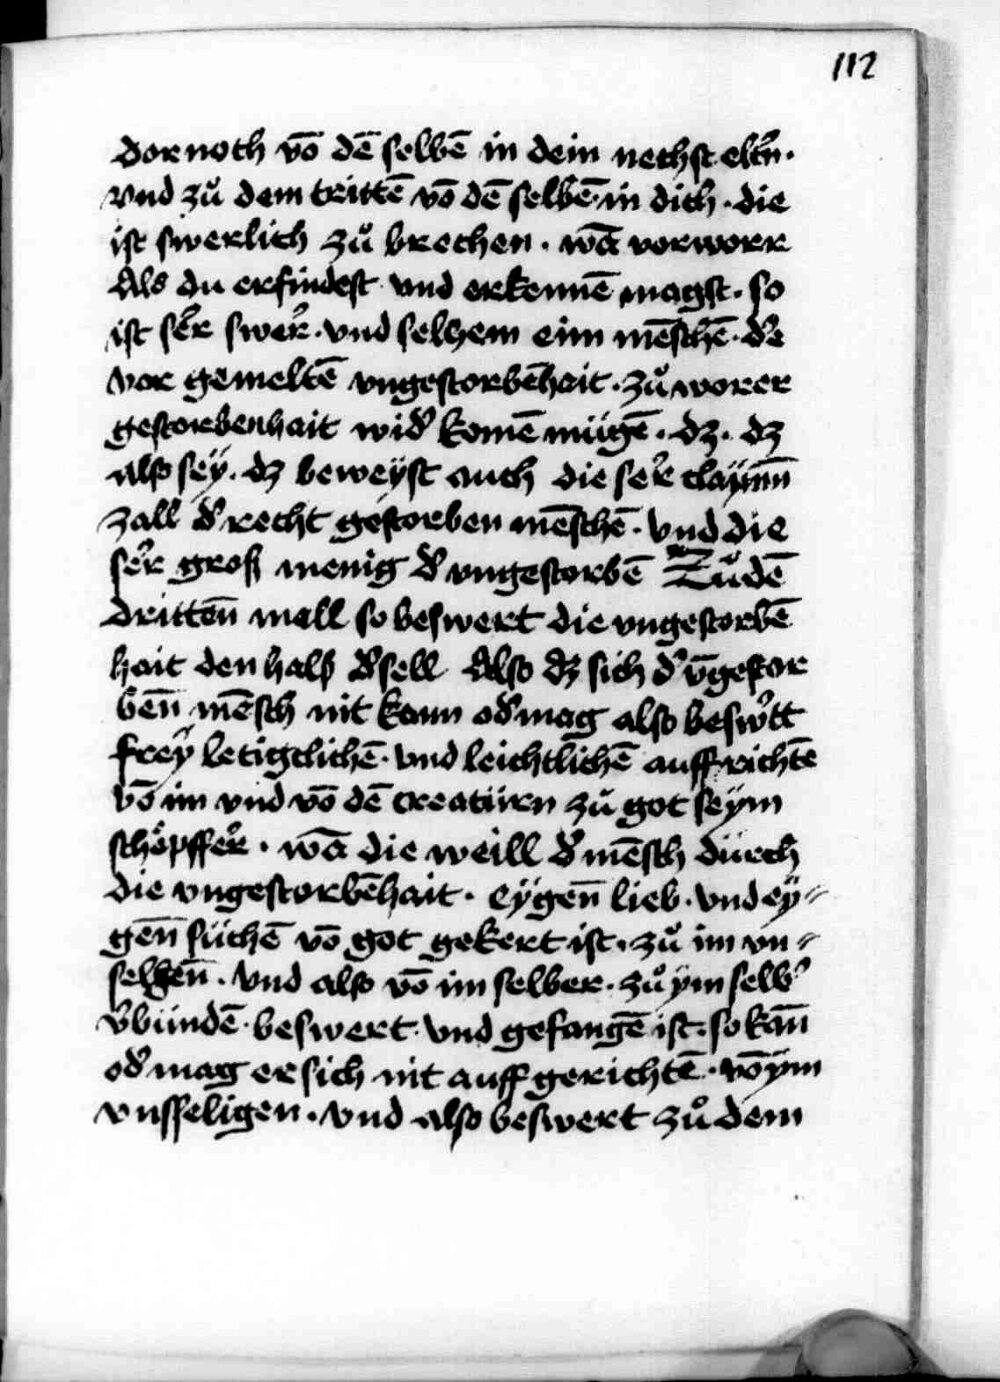 112
dornoch vō dē selbē in dein nechst eltn̄.
vnd zů dem trittē vō dē selbē. in dich. die
ist swerlich zů brechen. wā vorworr
Als du erfindest vnd erkennē magst. so
ist ser swer. vnd selczem eim mēschē. d'e
vor gemeltē vngestorbēhait. zů worer
gestorbenhait wid' komē mügē. dz. dz
also sey. dz beweyst auch die ser claynn̄
zall d' recht gestorben mēschē. vnd die
ser groß menig d' vngestorbē Zů dē
drittēn mall so beswert die vngestorbē
hait den halß d' sell Also dz sich d' v̄gestor
bēn mēsch nit kann od' mag also beswert
frey letigclichē. vnd leichtlichē auffrichtē
vō im vnd vō dē creatürn zů got seym
schöpffer. wā die weill d' mēsch durch
die vngestorbēhait. eygēn lieb. vnd ey=
gēn süchē vō got gekert ist. zů im vn=
selgēn. vnd also vō im selber. zů ym selb'
v'bündē. beswert. vnd gefangē ist. so kān
od' mag er sich nit auff gerichtē. vō ym
vnsseligen. vnd also beswert zů dem